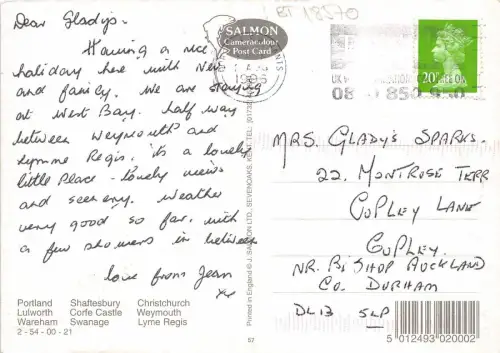 Dear Gladys.
Having a nice
holiday here with Nev
and family. We are staying
at West Bay. half way
between Weymouth and
Lyme Regis, it's a lovely
little Place - lovely views
and scenery. Weather
very good so far, with
a few showers in between
love from Jean
xx
Portland Shaftesbury Christchurch
Lulworth Corfe Castle Weymouth
Wareham Swanage Lyme Regis
2 - 54 - 00 - 21
SALMON
Cameracolour
Post Card
BT 18570
1996
20P
MRS. GLADYS SPARKS.
22, MONTROSE TERR
COPLEY LANE
COPLEY.
NR. BISHOP AUCKLAND
CO. DURHAM
DL13 5LP
Printed in England © J. SALMON LTD., SEVENOAKS, KENT. TEL:
57
5 012493 020002